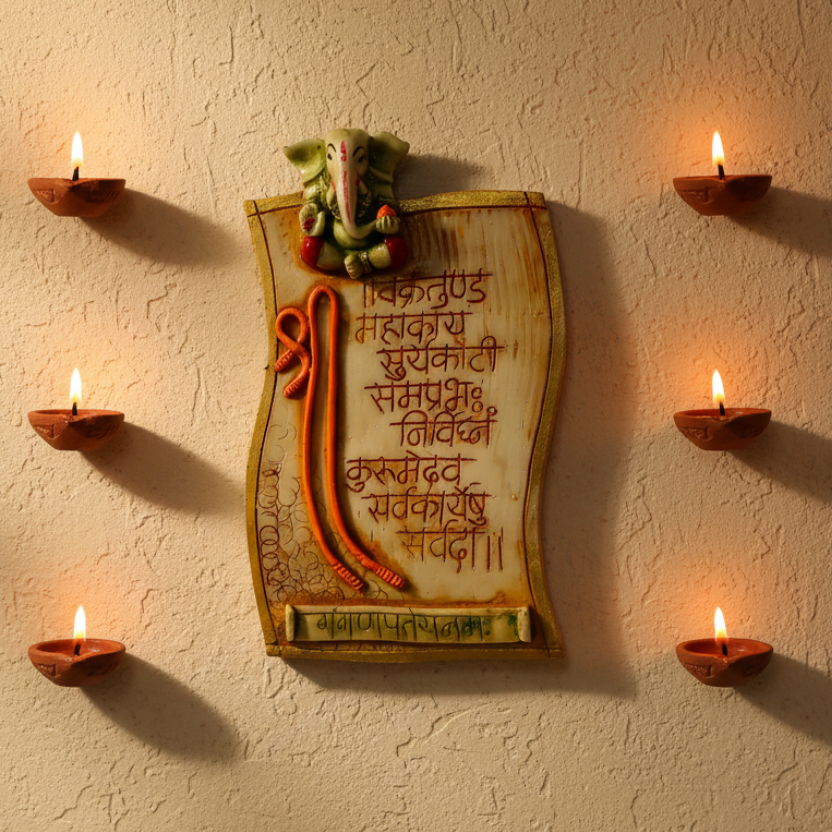 ॥वक्रतुण्ड
महाकाय
सुर्यकोटी
समप्रभः
निर्विघ्नं
कुरुमेदेव
सर्वकार्येषु
सर्वदा॥
गंगणपतयेनमः